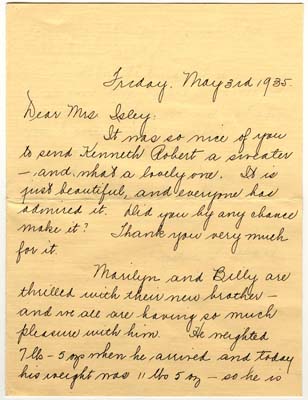 Friday. May 3rd 1935.
Dear Mrs. Isley:
It was so nice of you
to send Kenneth Robert a sweater
- and what a lovely one. It is
just beautiful, and everyone has
admired it. Did you by any chance
make it? Thank you very much
for it.
Marilyn and Billy are
thrilled with their new brother -
and we all are having so much
pleasure with him. He weighted
7 lb - 5 oz when he arrived and today
his weight was 11 lbs 5 oz - so he is